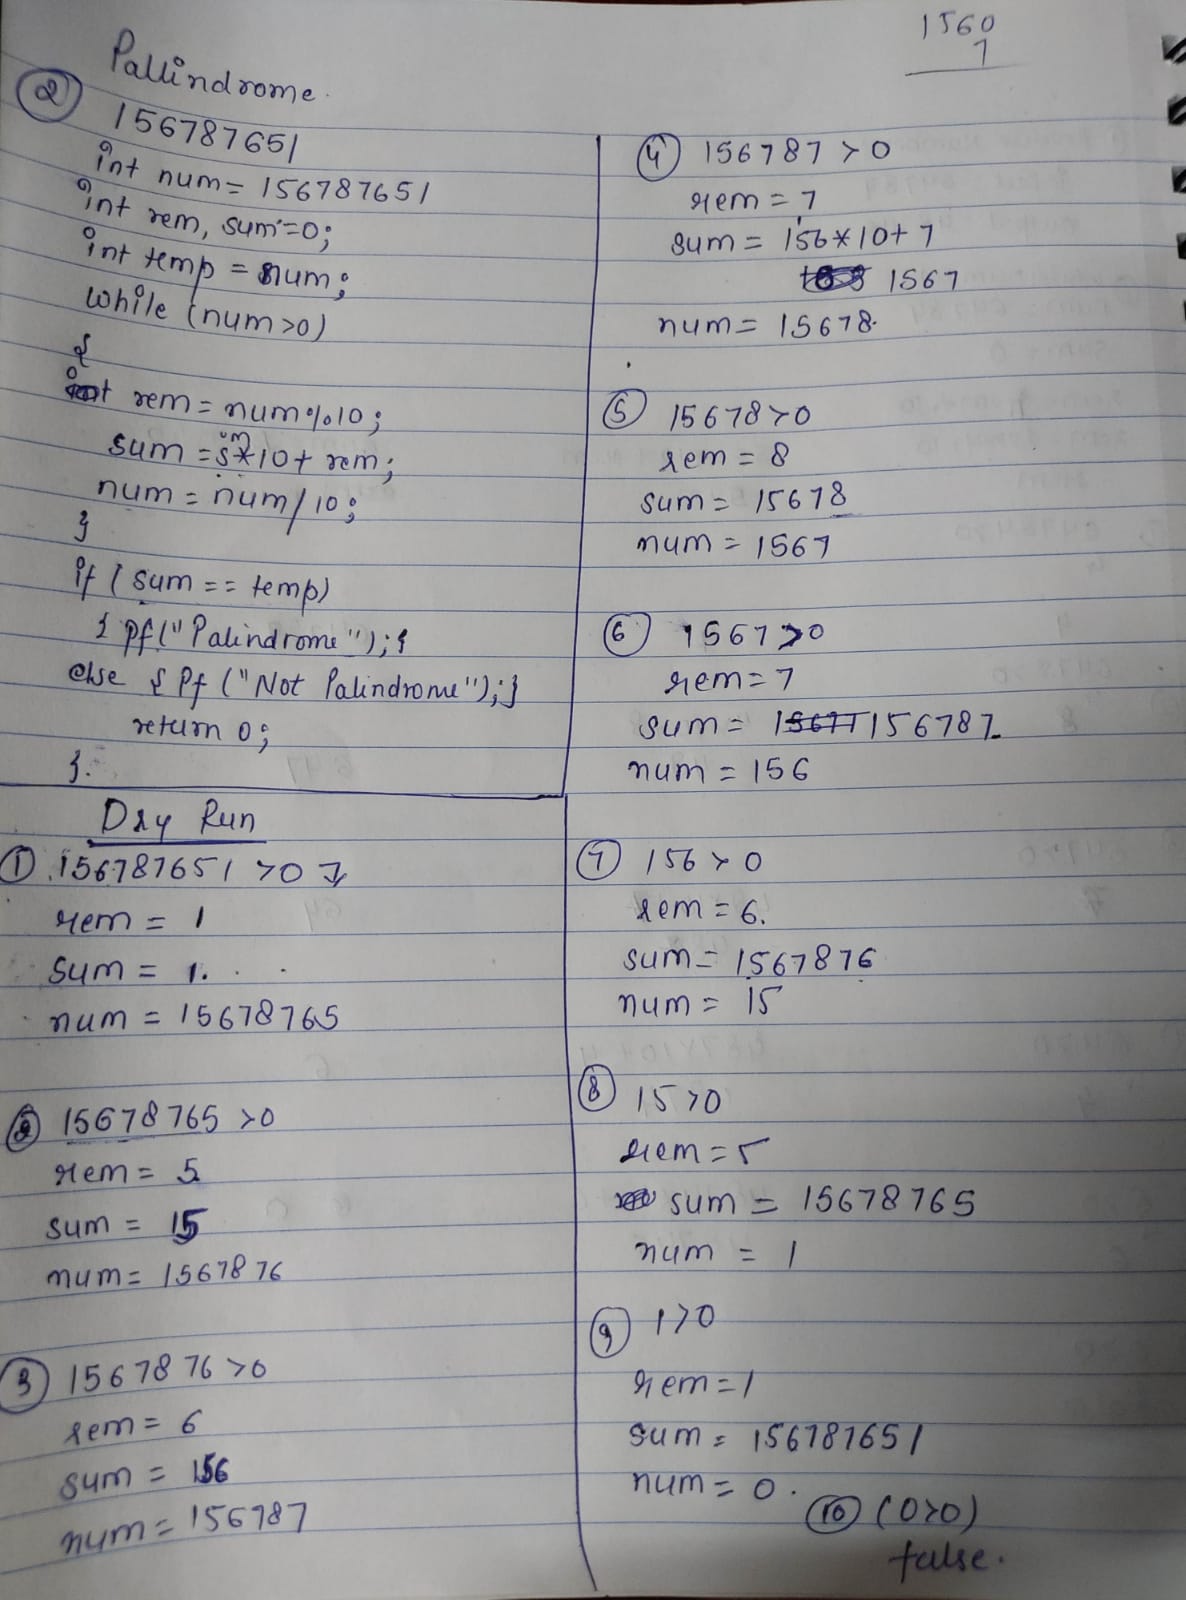 1560
7
Pallindrome.
② 156787651
int num = 156787651
int rem, sum=0;
int temp = num;
while (num>0)
{
rem = num%10;
sum = s*10+ rem;
num = num/10;
}
if (sum == temp)
{ pf("Palindrome"); }
else { Pf ("Not Palindrome"); }
return 0;
}.
Dry Run
① 156787651 >0
rem = 1
sum = 1.
num = 15678765
② 15678765 >0
rem = 5
sum = 15
num = 1567876
③ 1567876 >0
rem = 6
sum = 156
num = 156787
④ 156787 > 0
rem = 7
sum = 156*10+7
1567
num = 15678.
⑤ 15678>0
rem = 8
sum = 15678
num = 1567
⑥ 1567>0
rem = 7
sum = 156787
num = 156
⑦ 156 > 0
rem = 6.
sum = 1567876
num = 15
⑧ 15>0
rem = 5
sum = 15678765
num = 1
⑨ 1>0
rem = 1
sum = 156787651
num = 0.
⑩ (0>0)
false.